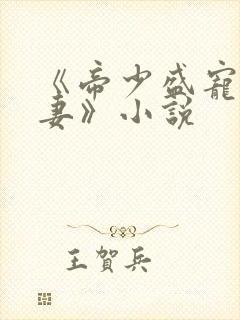 《帝少盛宠
妻》小説
王賀兵